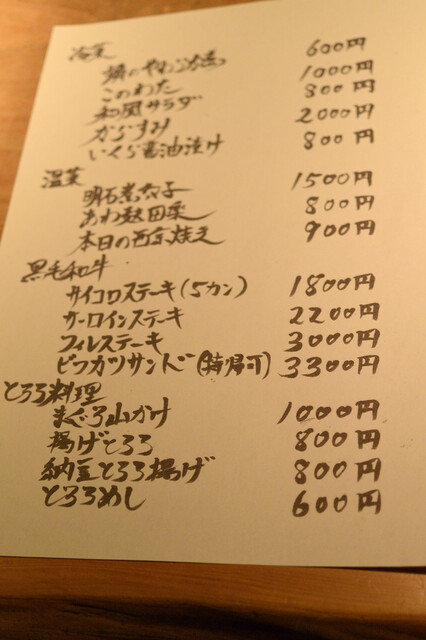 冷菜
蛸のやわらか煮 600円
このわた 1000円
和風サラダ 800円
からすみ 2000円
いくら醤油漬け 800円
温菜
明石煮穴子 1500円
あわ麩田楽 800円
本日の西京焼き 900円
黒毛和牛
サイコロステーキ(5カン) 1800円
サーロインステーキ 2200円
フィレステーキ 3000円
ビフカツサンド(持帰可) 3300円
とろろ料理
まぐろ山かけ 1000円
揚げとろろ 800円
納豆とろろ揚げ 800円
とろろめし 600円